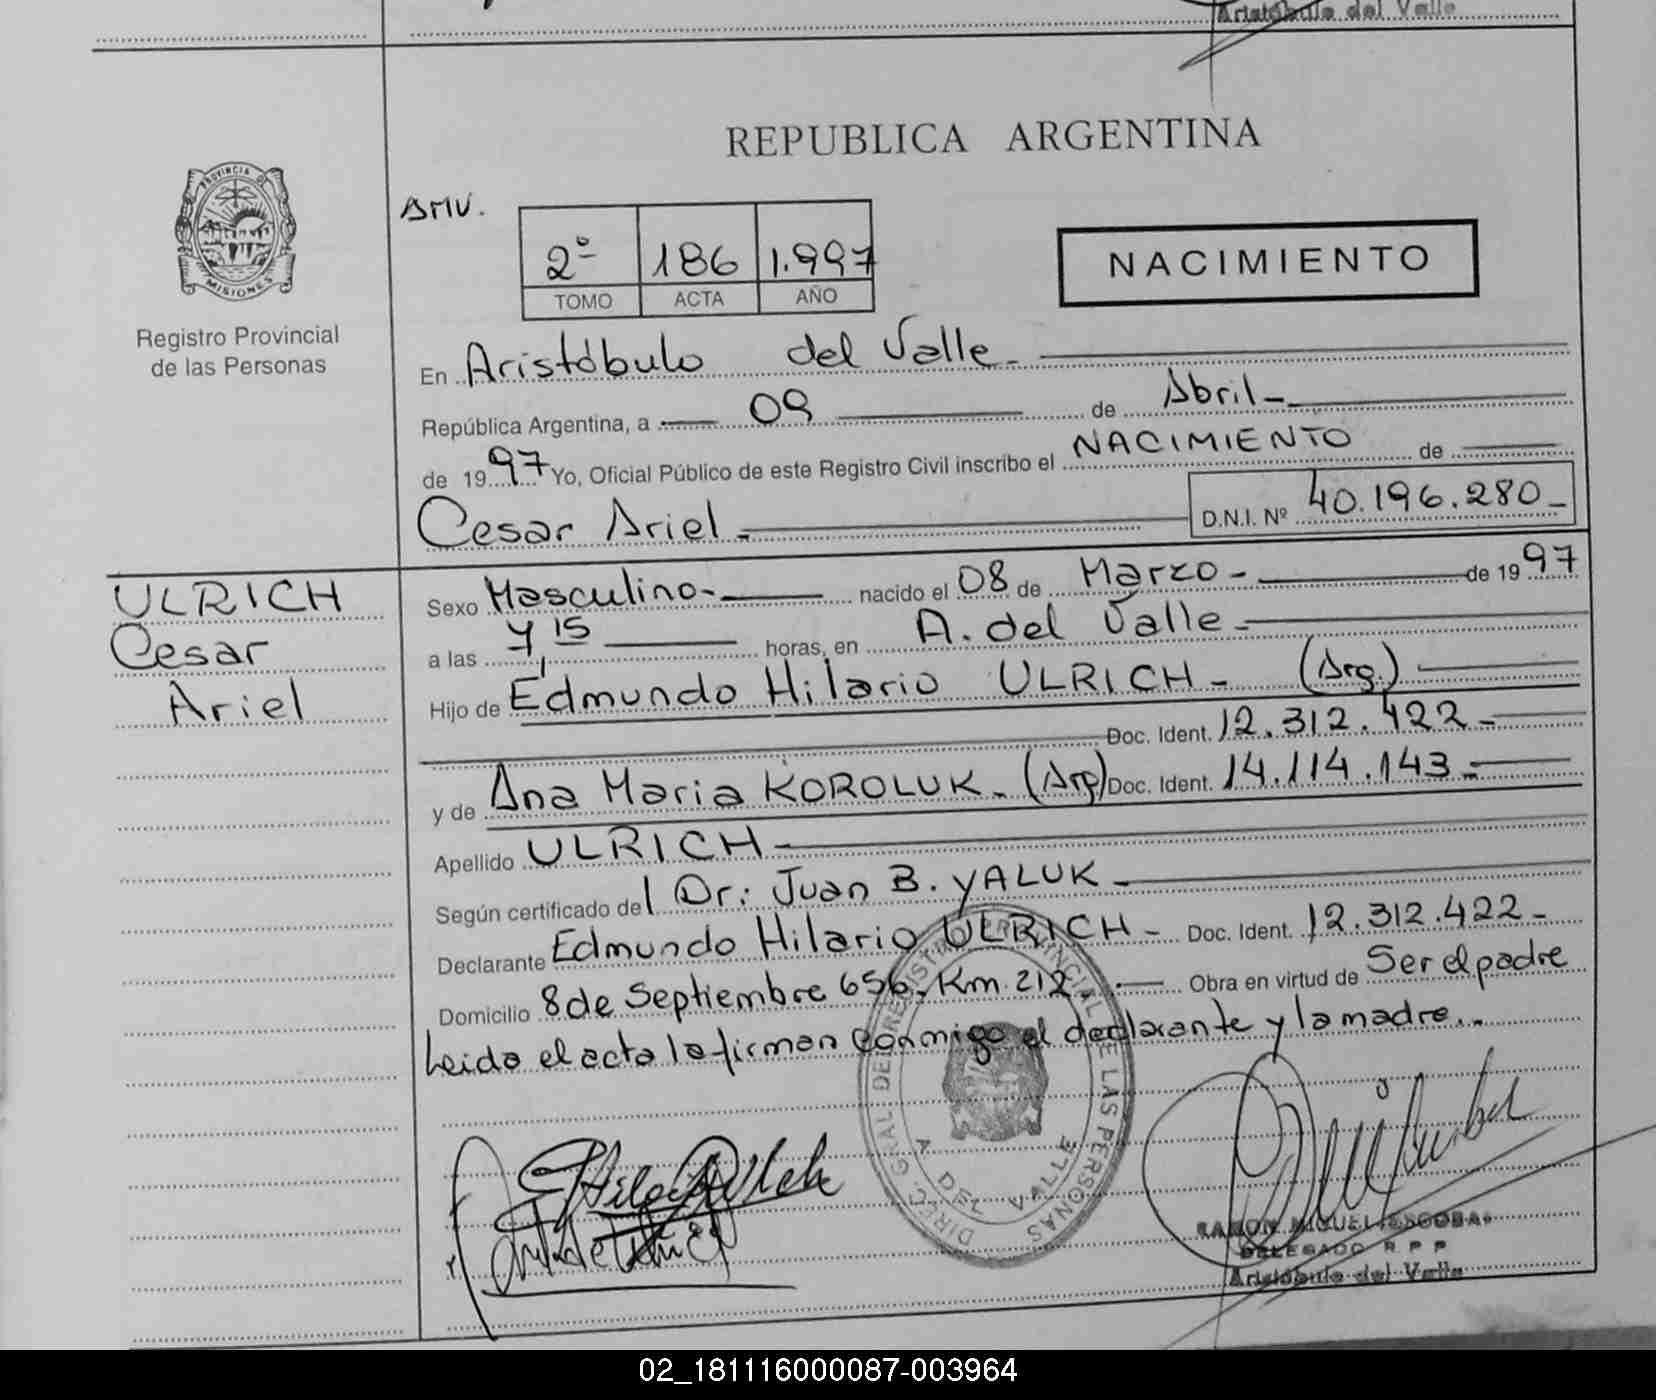 Aristóbulo del Valle
REPUBLICA ARGENTINA
PROVINCIA DE
MISIONES
Registro Provincial
de las Personas
AMV.
2º 186 1.997
TOMO ACTA AÑO
NACIMIENTO
En Aristóbulo del Valle-
República Argentina, a 09 de Abril-
de 1997 Yo, Oficial Público de este Registro Civil inscribo el NACIMIENTO de
Cesar Ariel- D.N.I. Nº 40.196.280-
ULRICH
Cesar
Ariel
Sexo Masculino.- nacido el 08 de Marzo- de 1997
a las 4,15 horas, en A. del Valle-
Hijo de Edmundo Hilario ULRICH- (Arg.)
Doc. Ident. 12.312.422-
y de Ana Maria KOROLUK- (Arg) Doc. Ident. 14.114.143-
Apellido ULRICH-
Según certificado del Dr: Juan B. YALUK-
Declarante Edmundo Hilario ULRICH- Doc. Ident. 12.312.422-
Domicilio 8 de Septiembre 656, Km. 212. Obra en virtud de Ser el padre
Leida el acta la firman conmigo el declarante y la madre..
DIREC. GRAL DE REGISTRO PROVINCIAL DE LAS PERSONAS
A. DEL VALLE
RAMON MIGUEL ESCOBAR
DELEGADO R P P
Aristóbulo del Valle
02_181116000087-003964